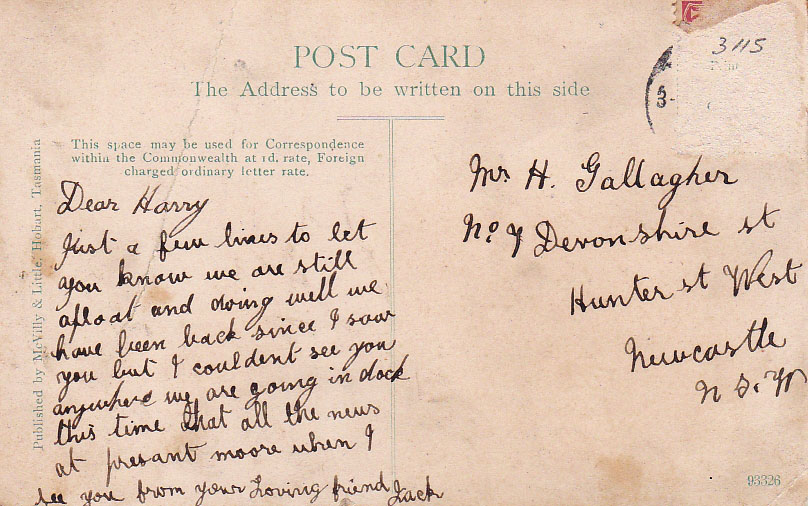 3115
POST CARD
The Address to be written on this side
This space may be used for Correspondence
within the Commonwealth at 1d. rate, Foreign
charged ordinary letter rate.
Published by McVilly & Little, Hobart, Tasmania
Dear Harry
Just a few lines to let
you know we are still
afloat and doing well we
have been back since I saw
you but I couldent see you
anywhere we are going in dock
this time that all the news
at presant moore when I
see you from your Loving friend Jack
Mr H. Gallagher
No 7 Devonshire st
Hunter st West
Newcastle
N.S.W
93326